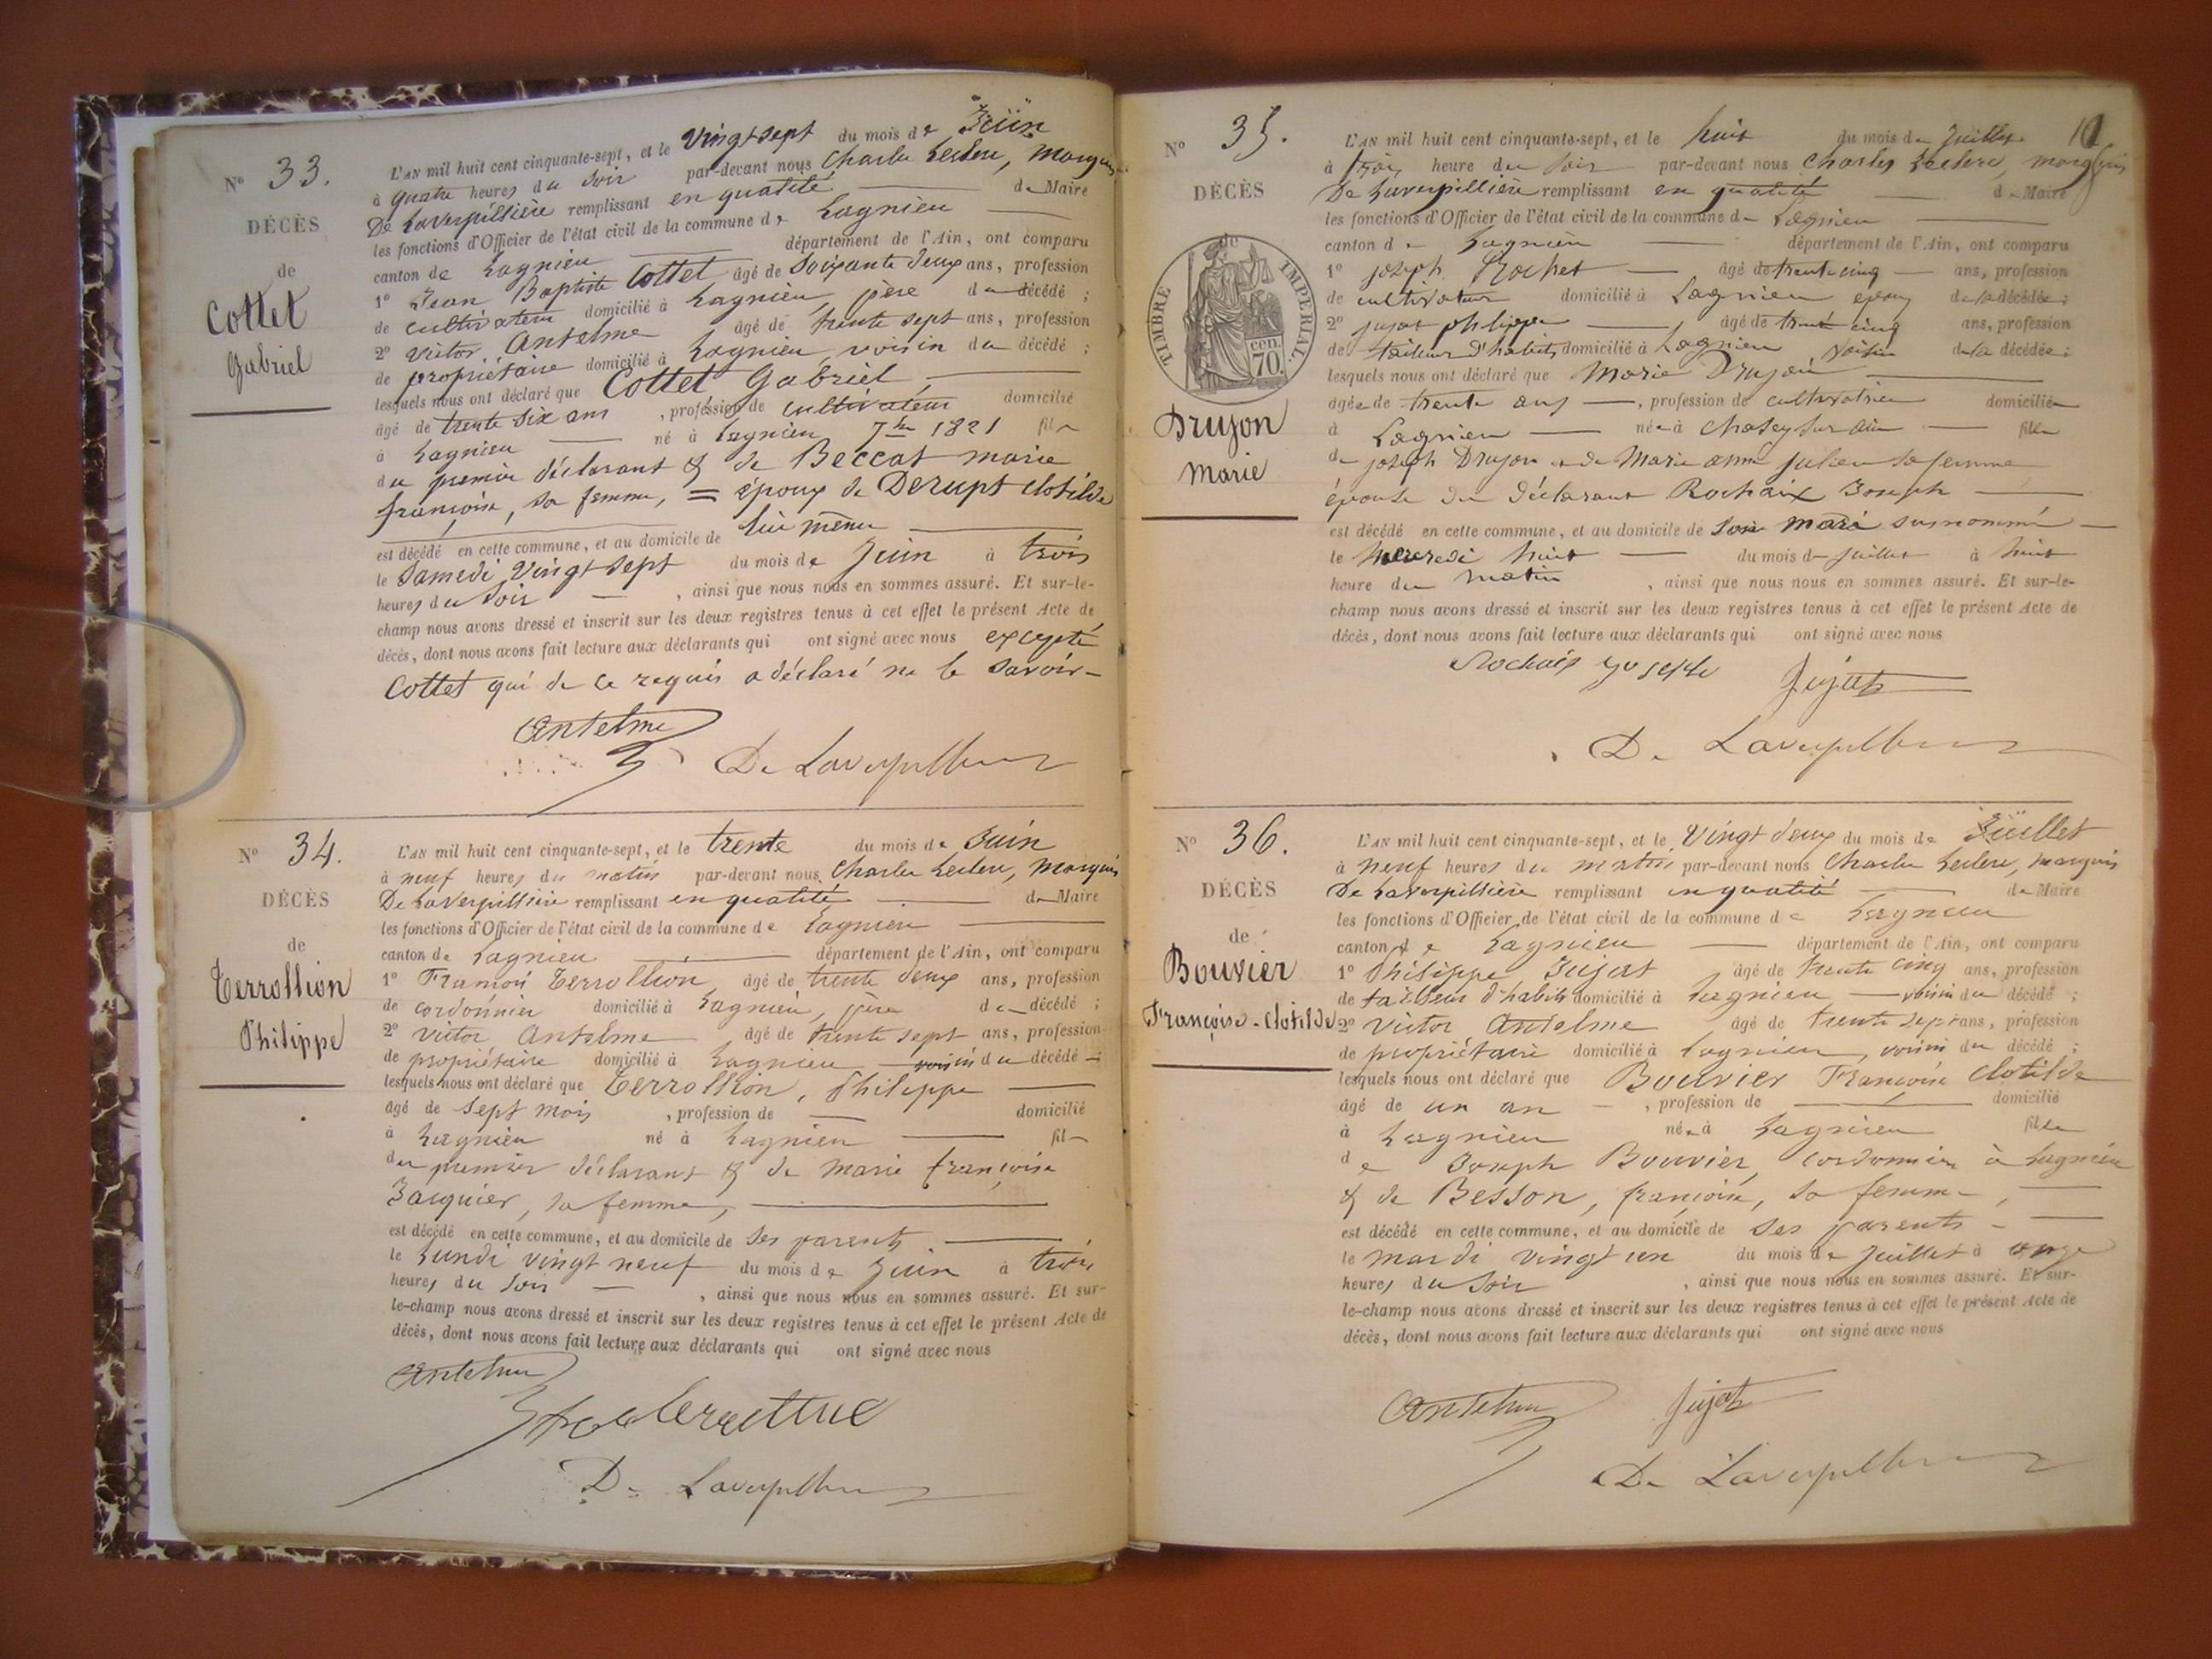 N° 33.
DÉCÈS
de
Cottet
Gabriel
L'AN mil huit cent cinquante-sept, et le Vingt sept du mois de Juin
à quatre heures du soir par-devant nous Charles Leclerc, Marquis
De Laverpillière remplissant en qualité de Maire
les fonctions d'Officier de l'état civil de la commune de Lagnieu
canton de Lagnieu département de l'Ain, ont comparu
1° Jean Baptiste Cottet âgé de Soixante deux ans, profession
de cultivateur domicilié à Lagnieu, père du décédé ;
2° Victor Antelme âgé de trente sept ans, profession
de propriétaire domicilié à Lagnieu, voisin du décédé ;
lesquels nous ont déclaré que Cottet Gabriel,
âgé de trente six ans, profession de cultivateur domicilié
à Lagnieu né à Lagnieu 7bre 1821 fils
du premier déclarant & de Beccat marie
françoise, sa femme, = époux de Derupt clotilde
est décédé en cette commune, et au domicile de lui même
le Samedi Vingt sept du mois de Juin à trois
heures du soir, ainsi que nous nous en sommes assuré. Et sur-le-
champ nous avons dressé et inscrit sur les deux registres tenus à cet effet le présent Acte de
décès, dont nous avons fait lecture aux déclarants qui ont signé avec nous excepté
Cottet qui de ce requis a déclaré ne le savoir-
Antelme
De Laverpillière
N° 34.
DÉCÈS
de
Terrollion
Philippe
L'AN mil huit cent cinquante-sept, et le trente du mois de Juin
à neuf heures du matin par-devant nous Charles Leclerc, Marquis
De Laverpillière remplissant en qualité de Maire
les fonctions d'Officier de l'état civil de la commune de Lagnieu
canton de Lagnieu département de l'Ain, ont comparu
1° François Terrollion, âgé de trente deux ans, profession
de cordonnier domicilié à Lagnieu, père du décédé ;
2° Victor Antelme âgé de trente sept ans, profession
de propriétaire domicilié à Lagnieu voisin du décédé ;
lesquels nous ont déclaré que Terrollion, Philippe
âgé de sept mois, profession de domicilié
à Lagnieu né à Lagnieu fils
du premier déclarant & de Marie françoise
Jacquier, sa femme,
est décédé en cette commune, et au domicile de ses parents
le Lundi vingt neuf du mois de Juin à trois
heures du soir, ainsi que nous nous en sommes assuré. Et sur-
le-champ nous avons dressé et inscrit sur les deux registres tenus à cet effet le présent Acte de
décès, dont nous avons fait lecture aux déclarants qui ont signé avec nous
Antelme
De Laverpillière
N° 35.
DÉCÈS
de
TIMBRE IMPÉRIAL.
cen.
70.
Drujon
Marie
L'AN mil huit cent cinquante-sept, et le huit du mois de Juillet
à trois heure du soir par-devant nous Charles Leclerc, marquis
De Laverpillière remplissant en qualité de Maire
les fonctions d'Officier de l'état civil de la commune de Lagnieu
canton de Lagnieu département de l'Ain, ont comparu
1° joseph Rochet âgé de trente cinq ans, profession
de cultivateur domicilié à Lagnieu époux de la décédée ;
2° jujat philippe âgé de trente cinq ans, profession
de tailleur d'habits domicilié à Lagnieu, voisin de la décédée ;
lesquels nous ont déclaré que Marie Drujon
âgée de trente ans, profession de cultivatrice domiciliée
à Lagnieu née à Chasey sur ain fille
de joseph Drujon et de Marie anne julien sa femme
épouse du déclarant Rochaix Joseph
est décédé en cette commune, et au domicile de Son mari susnommé
le mercredi huit du mois de juillet à huit
heure du matin, ainsi que nous nous en sommes assuré. Et sur-le-
champ nous avons dressé et inscrit sur les deux registres tenus à cet effet le présent Acte de
décès, dont nous avons fait lecture aux déclarants qui ont signé avec nous
Rochaix joseph Jujat
De Laverpillière
N° 36.
DÉCÈS
de
Bouvier
Françoise-Clotilde
L'AN mil huit cent cinquante-sept, et le Vingt deux du mois de Juillet
à neuf heures du matin par-devant nous Charles Leclerc, marquis
De Laverpillière remplissant en qualité de Maire
les fonctions d'Officier de l'état civil de la commune de Lagnieu
canton de Lagnieu département de l'Ain, ont comparu
1° Philippe Jujat, âgé de trente cinq ans, profession
de tailleur d'habits domicilié à Lagnieu, voisin du décédé ;
2° Victor Antelme âgé de trente sept ans, profession
de propriétaire domicilié à Lagnieu, voisin du décédé ;
lesquels nous ont déclaré que Bouvier Françoise Clotilde
âgé de un an, profession de domicilié
à Lagnieu née à Lagnieu fille
de Joseph Bouvier, cordonnier à Lagnieu
& de Besson, françoise, sa femme,
est décédé en cette commune, et au domicile de ses parents
le mardi vingt un du mois de Juillet à onze
heures du soir, ainsi que nous nous en sommes assuré. Et sur-
le-champ nous avons dressé et inscrit sur les deux registres tenus à cet effet le présent Acte de
décès, dont nous avons fait lecture aux déclarants qui ont signé avec nous
Antelme Jujat
De Laverpillière